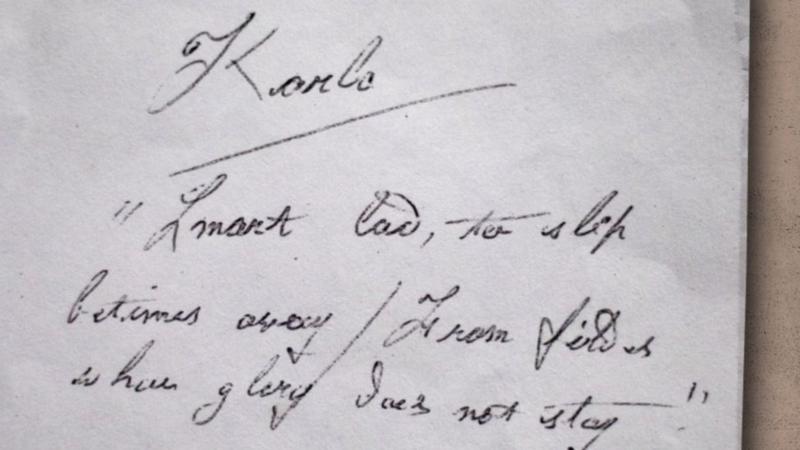 Karlo
"Smart lad, to slip
betimes away / From fields
where glory does not stay"